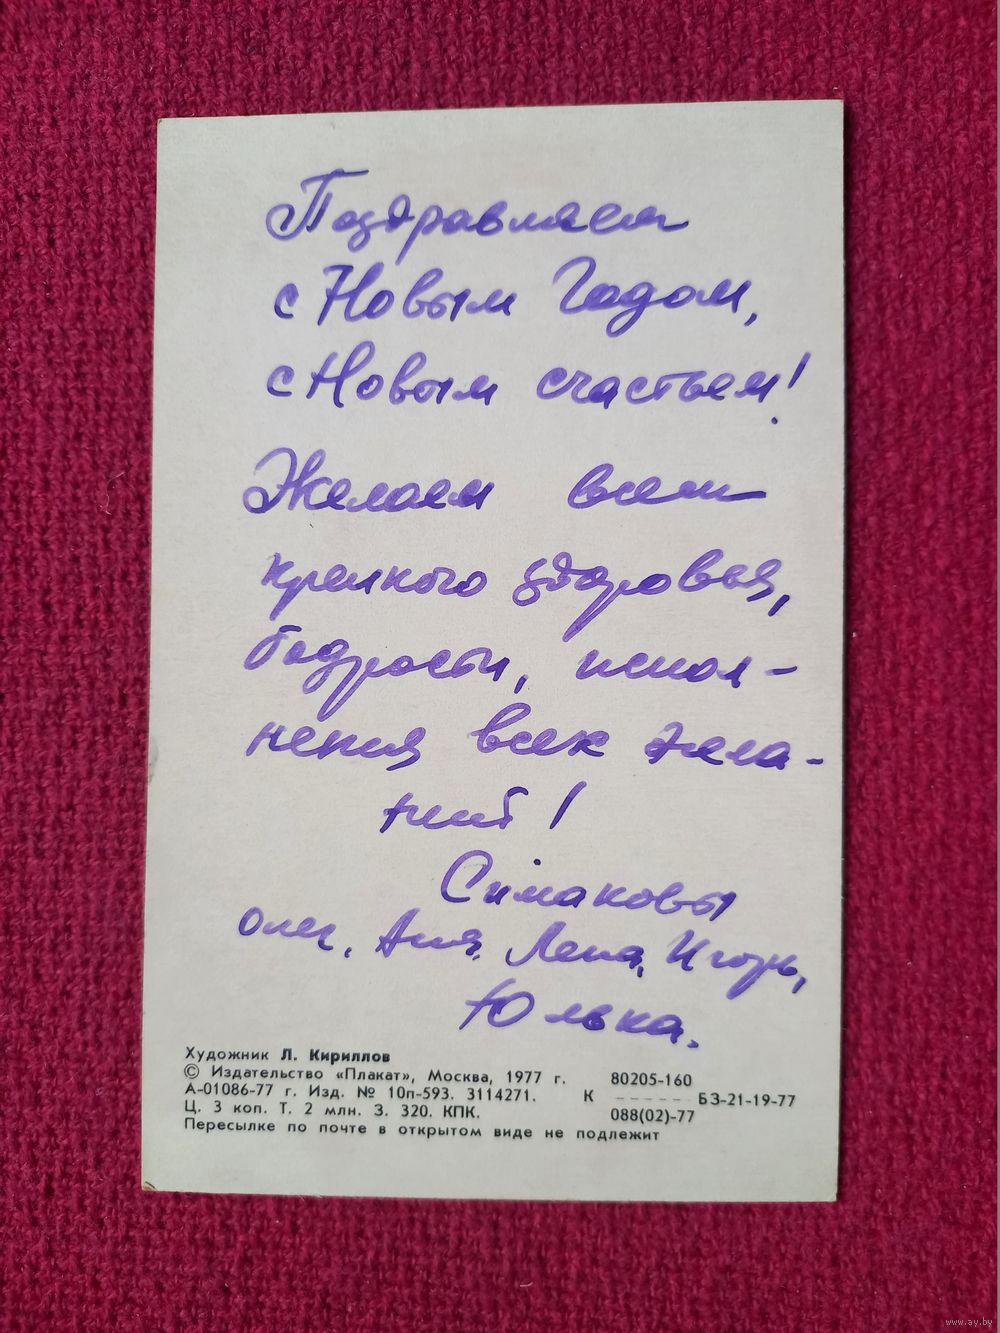 Поздравляем
с Новым Годом,
с Новым счастьем!
Желаем всем
крепкого здоровья,
бодрости, испол-
нения всех жела-
ний!
Симаковы
Олег, Аня, Лена, Игорь,
Юлька.
Художник Л. Кириллов
© Издательство «Плакат», Москва, 1977 г. 80205-160
А-01086-77 г. Изд. № 10п-593. 3114271. К ------ БЗ-21-19-77
Ц. 3 коп. Т. 2 млн. З. 320. КПК. 088(02)-77
Пересылке по почте в открытом виде не подлежит
www.ay.by